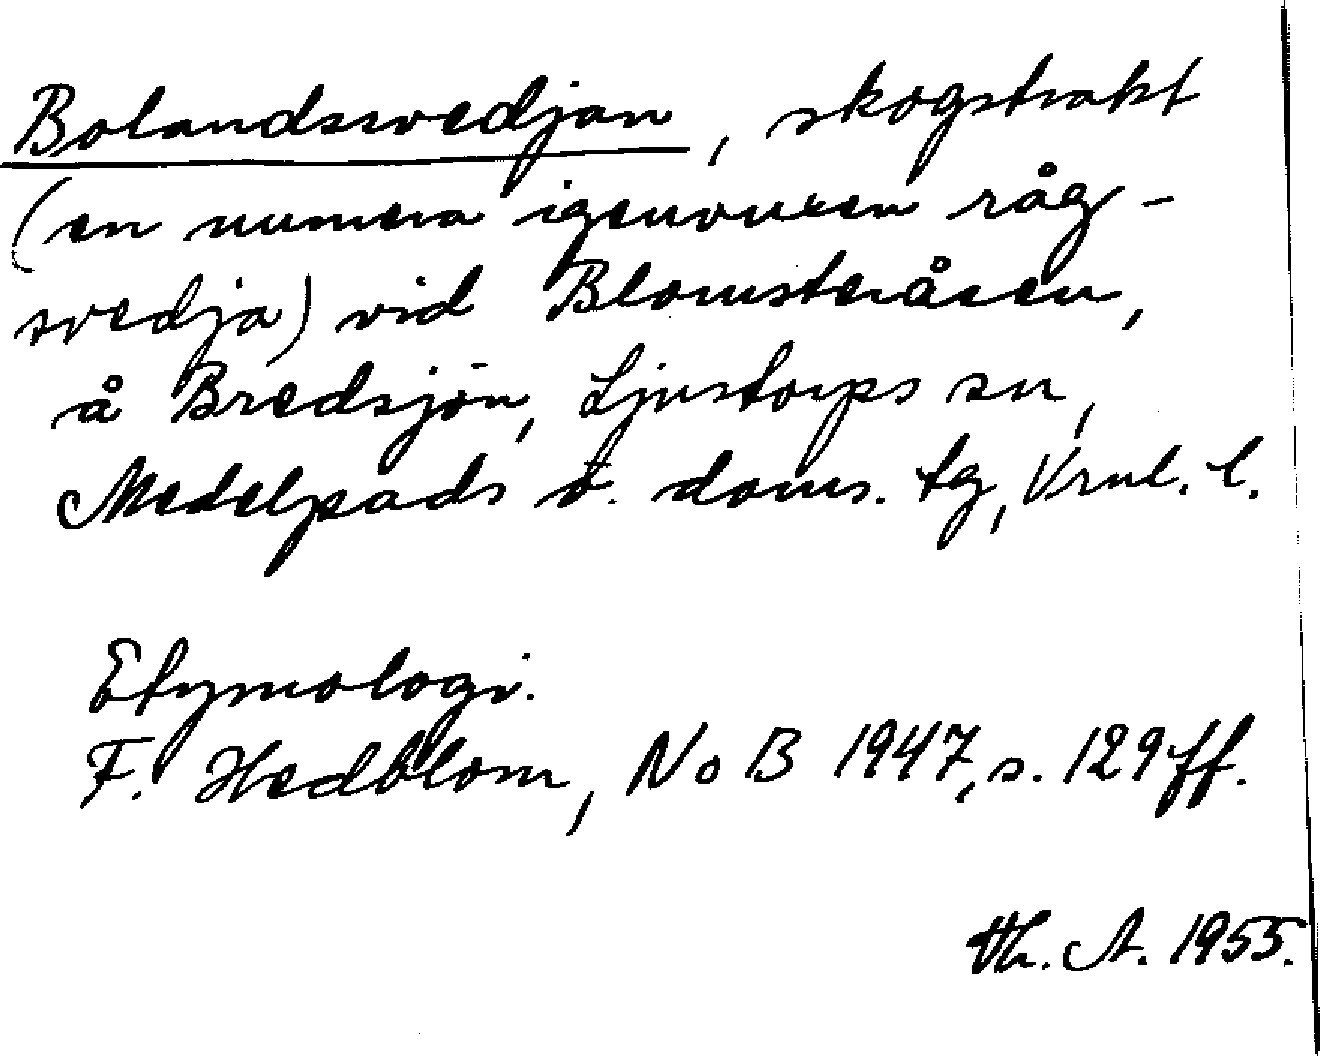 Bolandssvedjan, skogstrakt
(en numera igenvuxen råg-
svedja) vid Blomsteråsen,
å Bredsjön, Ljustorps sn,
Medelpads ö. doms. tg, Vrnl. l.
Etymologi.
F. Hedblom, NoB 1947, s. 129 ff.
Th. A. 1955.